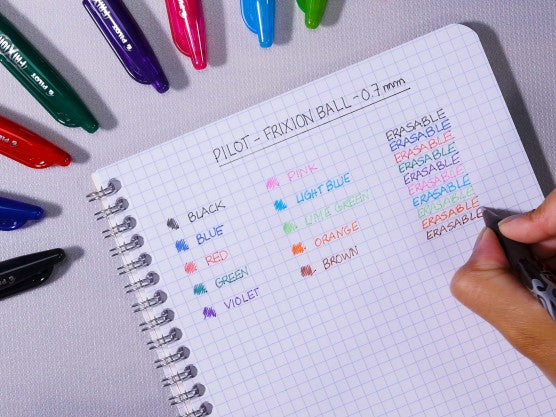 PILOT - FRIXION BALL - 0.7 mm
BLACK
BLUE
RED
GREEN
VIOLET
PINK
LIGHT BLUE
LIME GREEN
ORANGE
BROWN
ERASABLE
ERASABLE
ERASABLE
ERASABLE
ERASABLE
ERASABLE
ERASABLE
ERASABLE
ERASABLE
ERASABLE
PILOT
PILOT
PILOT